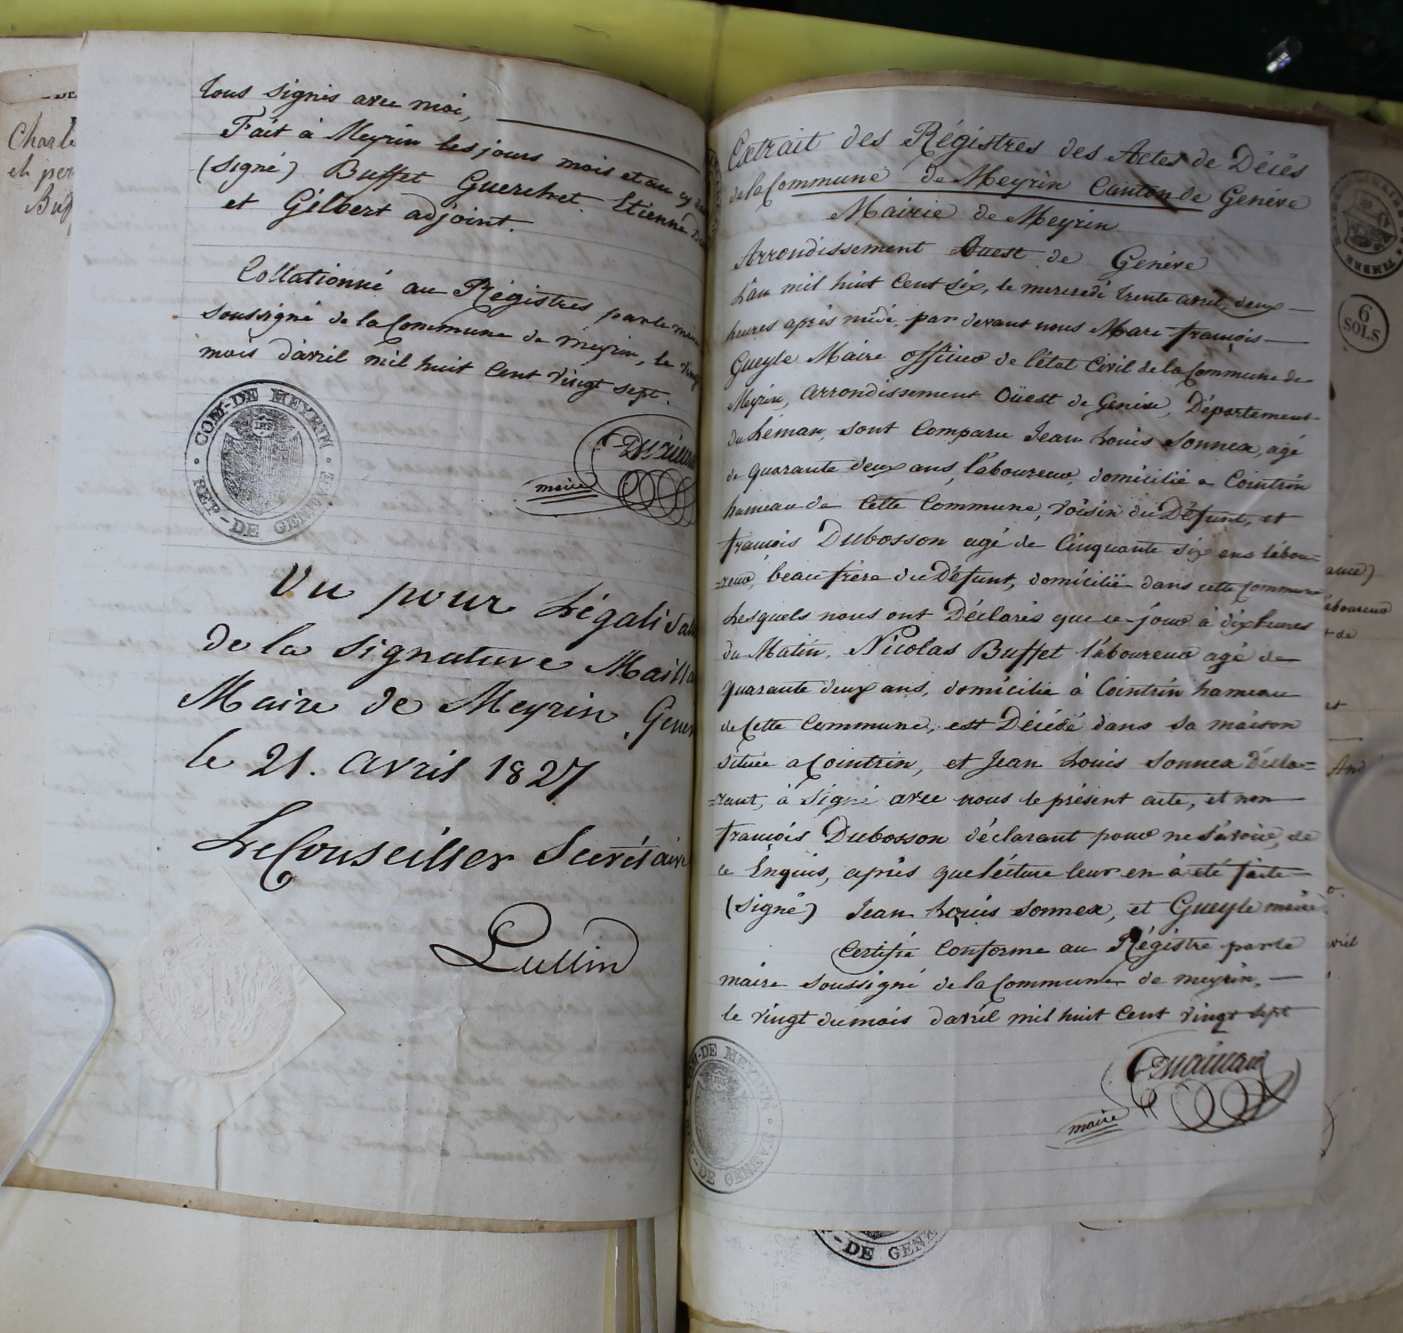 Charle
et per
Buff
tous signés avec moi,
Fait à Meyrin les jours mois et an cy
(signé) Buffet Guerchet. Etienne
et Gilbert adjoint.
Collationné au Régistres par le
soussigné de la Commune de meyrin, le vingt
mois d'avril mil huit Cent vingt sept.
COM-DE MEYRIN
REP-DE GENEVE
maire
Vu pour Légalisa
de la Signature Mailla
Maire de Meyrin, Genev
le 21. avril 1827
Le Conseiller Secrétaire
Lullin
Extrait des Régistres des Actes de Décès
de la Commune de Meyrin Canton de Genève
Mairie de Meyrin
Arrondissement Ouest de Genève
L'an mil huit Cent six, le mercredi trente avril, deux
heures après midi, par devant nous Marc françois
Gueyle Maire officier de l'état Civil de la Commune de
Meyrin, arrondissement Oüest de Genève, Département
du Léman, sont Comparu Jean Louis Sonnex, agé
de quarante deux ans, laboureur, domicilié a Cointrin
hameau de Cette Commune, voisin du Défunt, et
françois Dubosson agé de Cinquante six ans labou=
=reur, beaufrère du Défunt, domicilié dans cette Commune
Lesquels nous ont Déclarés que ce jour à dix heures
du Matin, Nicolas Buffet laboureur agé de
quarante deux ans, domicilié à Cointrin hameau
de Cette Commune, est Décédé dans sa maison
située a Cointrin, et Jean Louis Sonnex Décla=
=rant, à Signé avec nous le présent acte, et non
françois Dubosson déclarant pour ne savoir, de
ce Enquis, après que lécture leur en à été faite
(signé) Jean Louis Sonnex, et Gueyle maire
Certifié Conforme au Régistre par le
maire soussigné de la Commune de meyrin,
le vingt du mois d'avril mil huit Cent vingt sept
COM-DE MEYRIN
REP-DE GENEVE
maire
-DE GENE
TIMBRE
6
SOLS
laboureur
avril